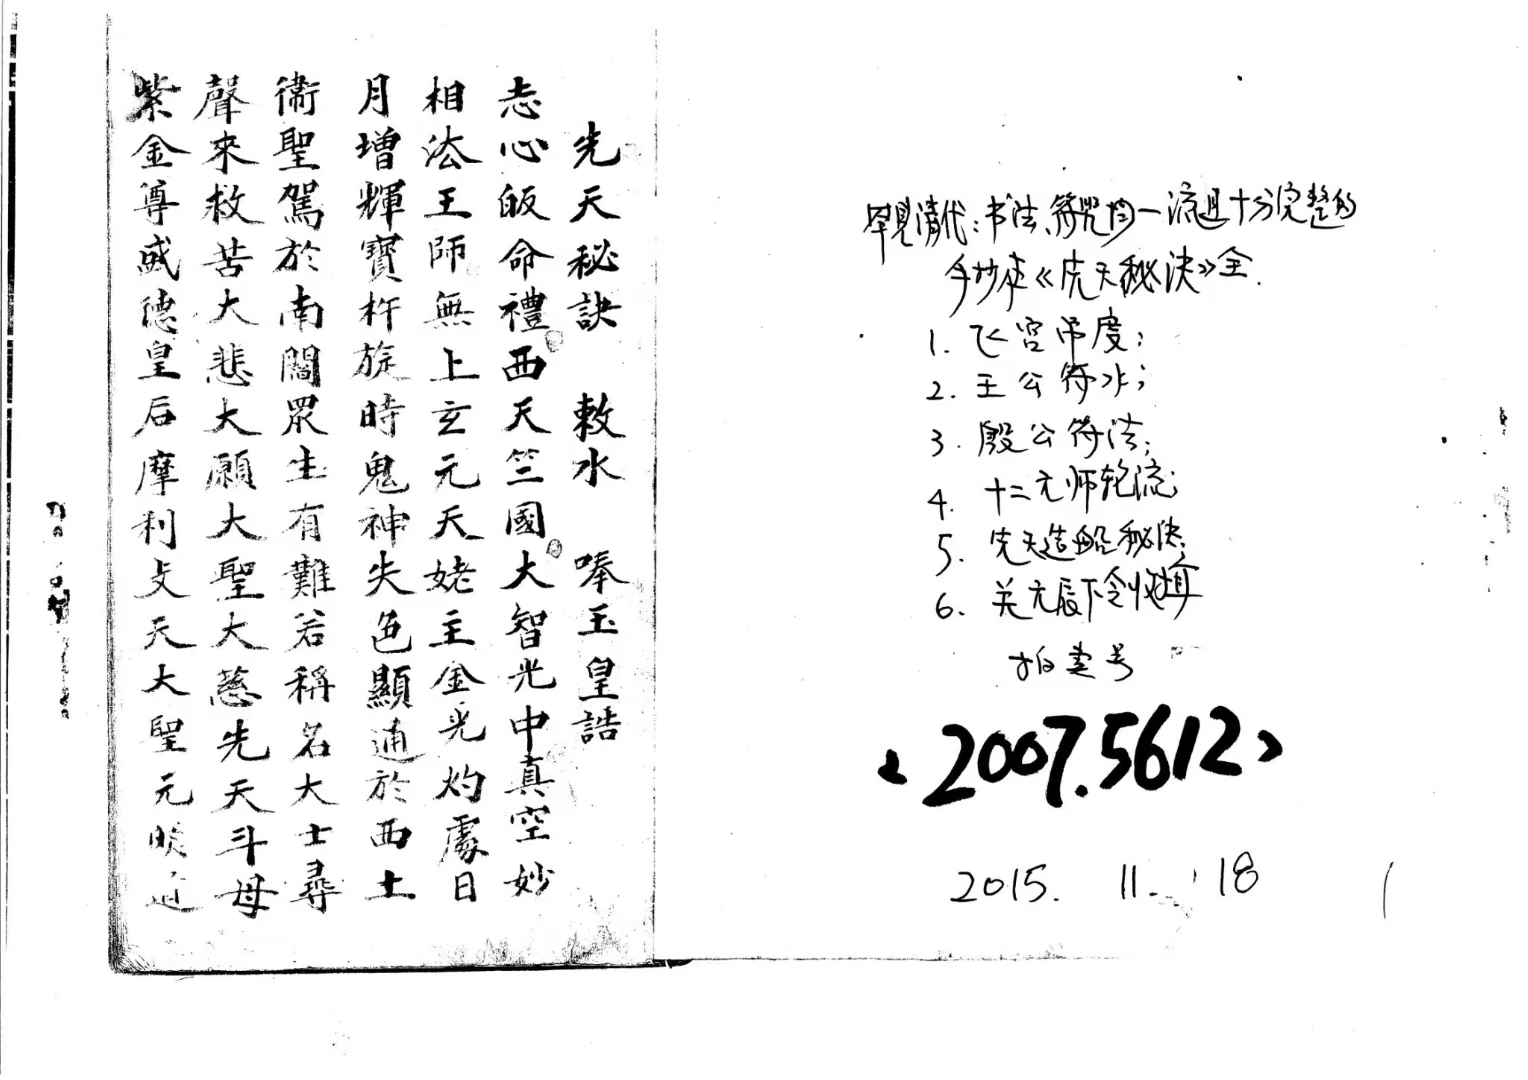 先天秘訣 敕水 唪玉皇誥
志心皈命禮西天竺國大智光中真空妙
相法王師無上玄元天姥主金光灼處日
月增輝寶杵旋時鬼神失色顯通於西土
衛聖駕於南閻眾生有難若稱名大士尋
聲來救苦大悲大願大聖大慈先天斗母
紫金尊威德皇后摩利支天大聖元明道
罕見清代：书法、符咒均一流且十分完整的
手抄本《先天秘决》全.
1. 飞宫吊度；
2. 王公符水；
3. 殷公符法；
4. 十二元师轮流；
5. 先天造船秘决；
6. 关元辰下令
拍卖号
<2007.5612>
2015. 11. 18